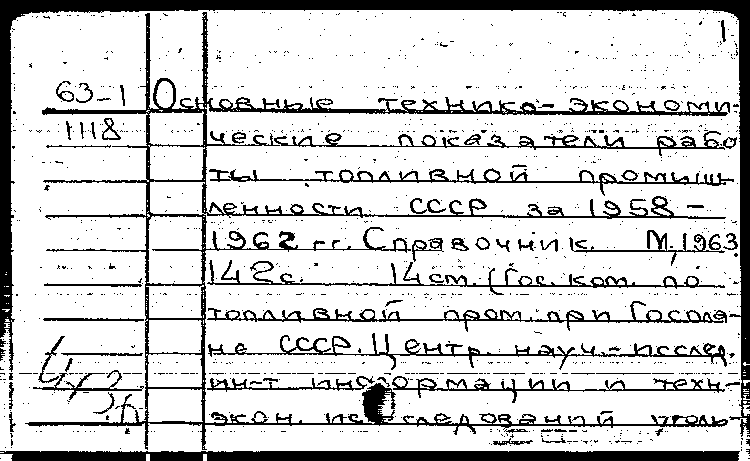 1
63-1 Основные технико-экономи-
1118 ческие показатели рабо
ты топливной промыш
ленности СССР за 1958 -
1962 гг. Справочник. М, 1963
142с. 14 см. (Гос. ком. по
топливной пром. при Госпла-
не СССР. Центр. науч.-исслед.
ин-т информации и техн-
экон. исследований уголь